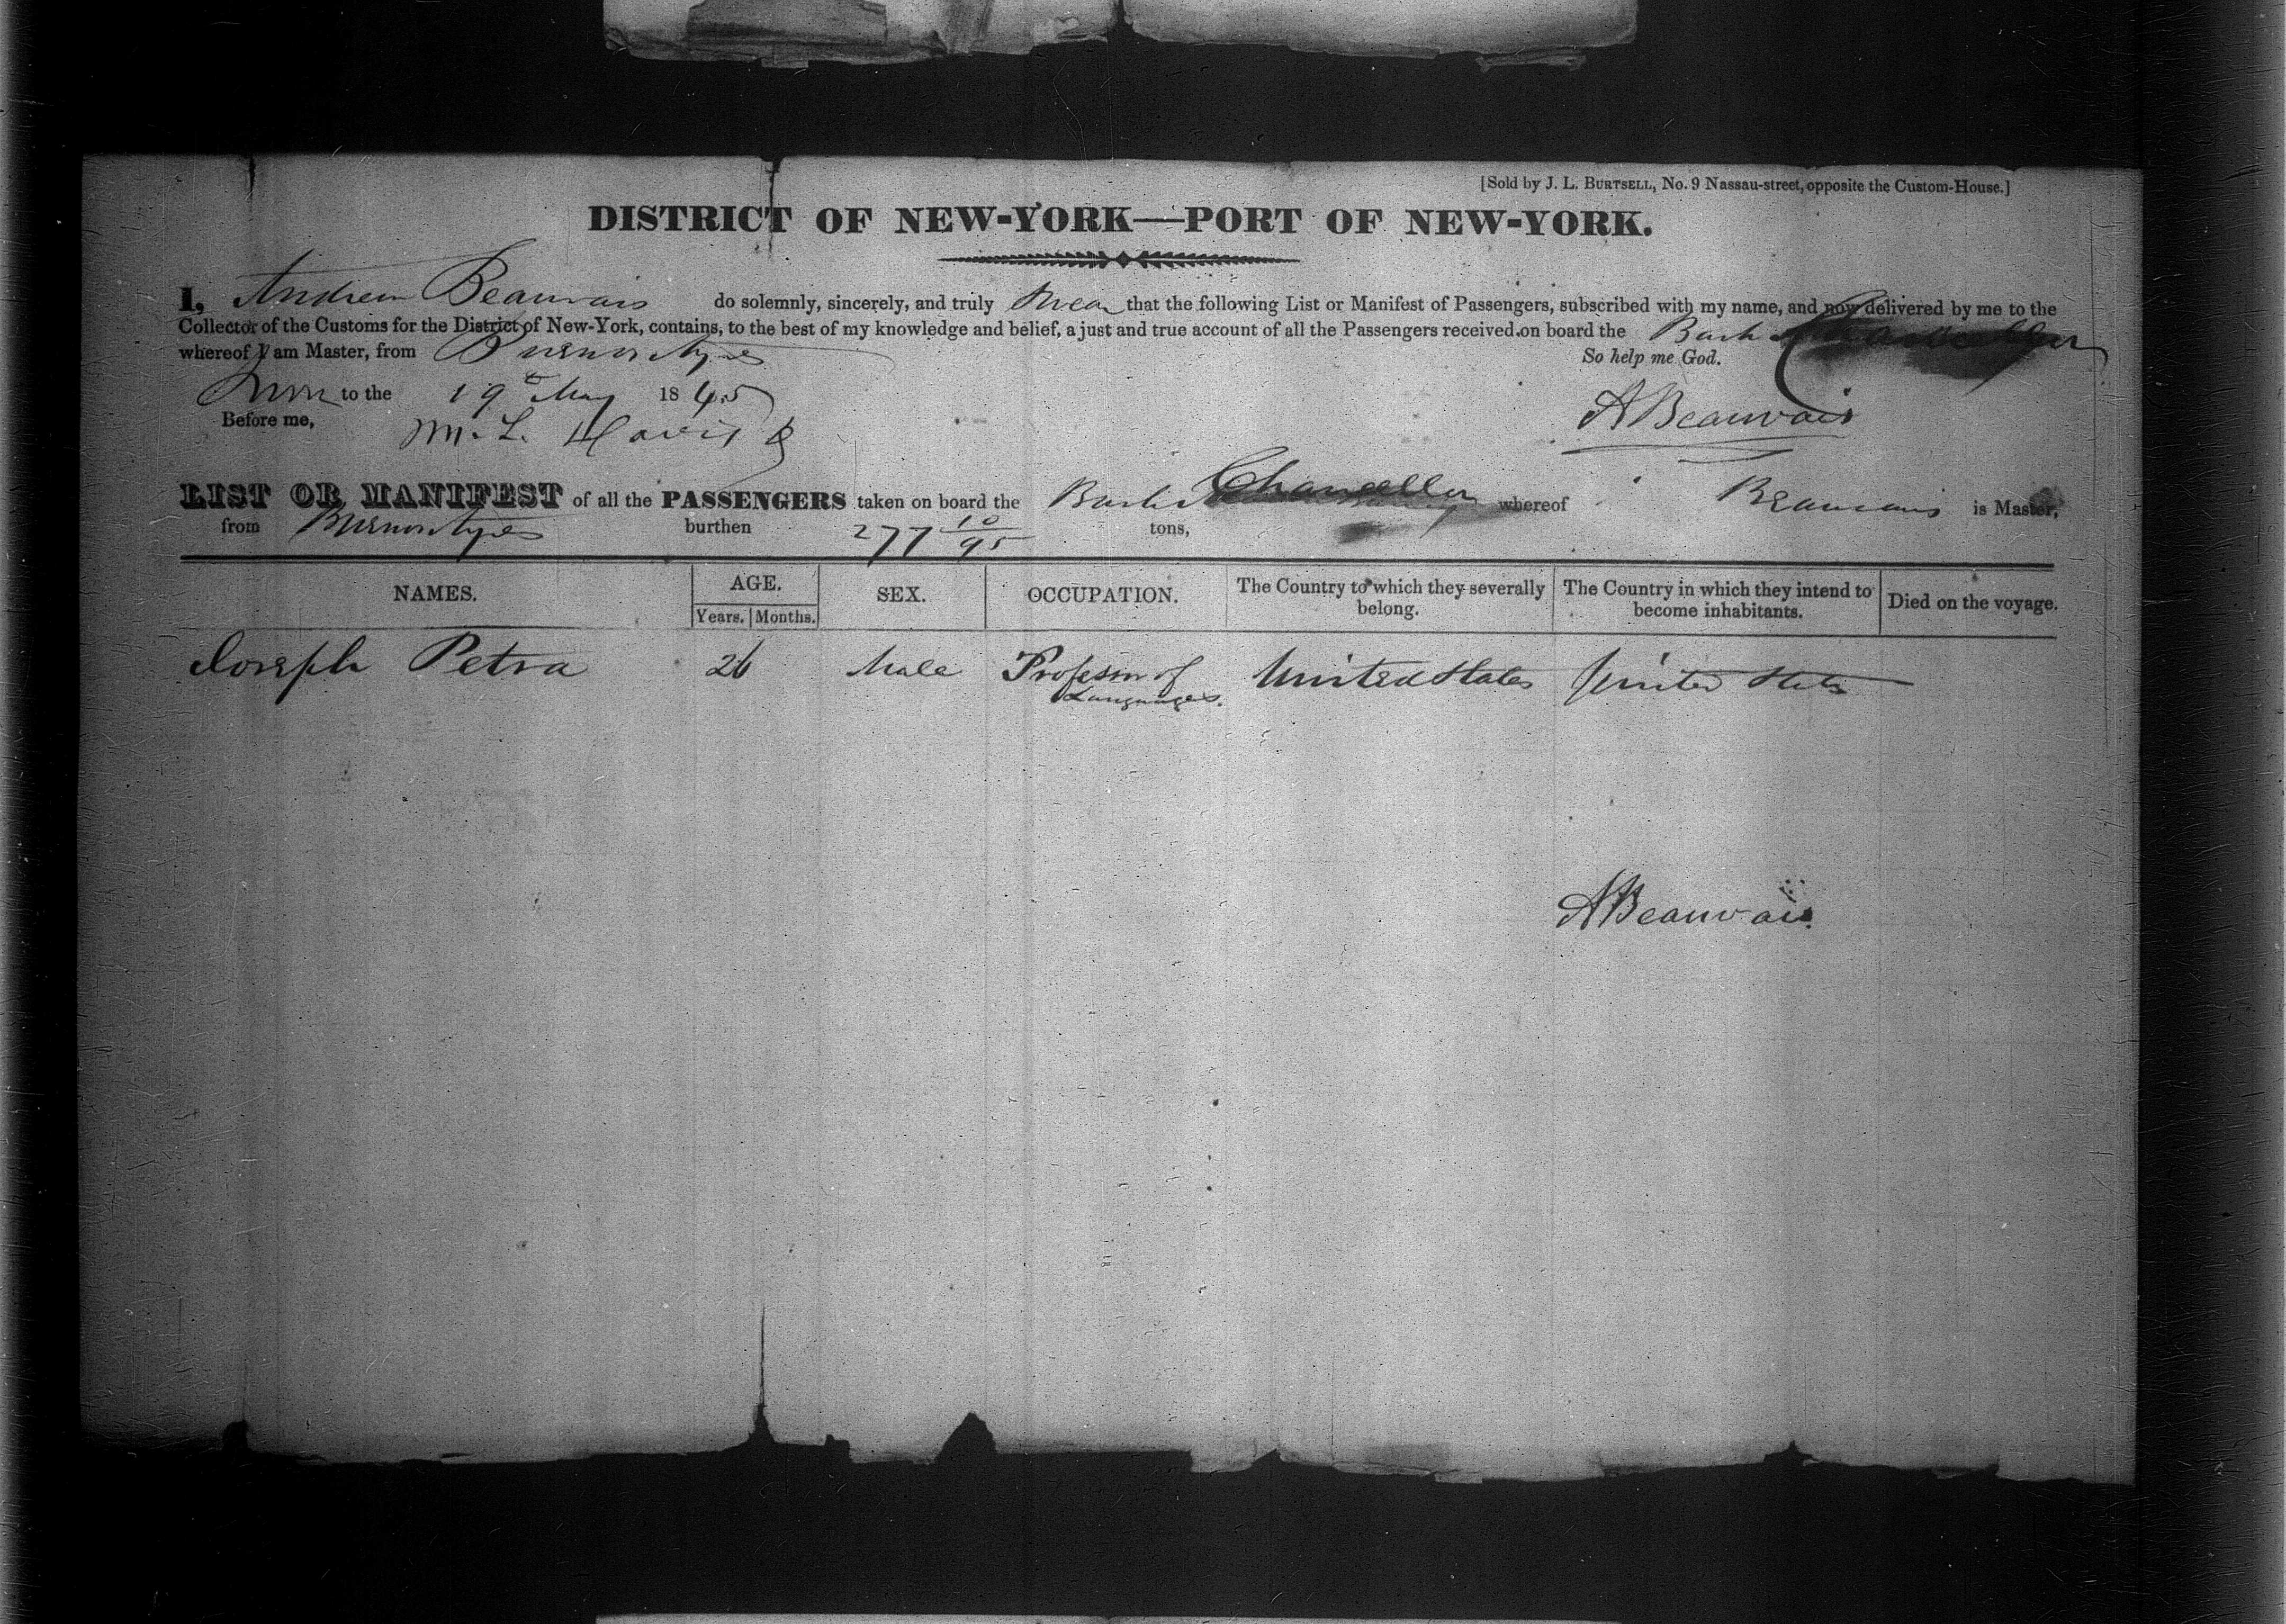 [Sold by J. L. BURTSELL, No. 9 Nassau-street, opposite the Custom-House.]
DISTRICT OF NEW-YORK—PORT OF NEW-YORK.
I, Andrew Beauvais do solemnly, sincerely, and truly swear that the following List or Manifest of Passengers, subscribed with my name, and now delivered by me to the
Collector of the Customs for the District of New-York, contains, to the best of my knowledge and belief, a just and true account of all the Passengers received on board the Bark Chancellor
whereof I am Master, from Buenos Ayres
So help me God.
Sworn to the 19th May 1845
A Beauvais
Before me, M. L. Davis
LIST OR MANIFEST of all the PASSENGERS taken on board the Bark Chancellor whereof Beauvais is Master,
from Buenos Ayres burthen 277 10/95 tons,
NAMES. AGE. SEX. OCCUPATION. The Country to which they severally belong. The Country in which they intend to become inhabitants. Died on the voyage.
Years. Months.
Joseph Petra 26 Male Professor of Languages. United States United States
A Beauvais